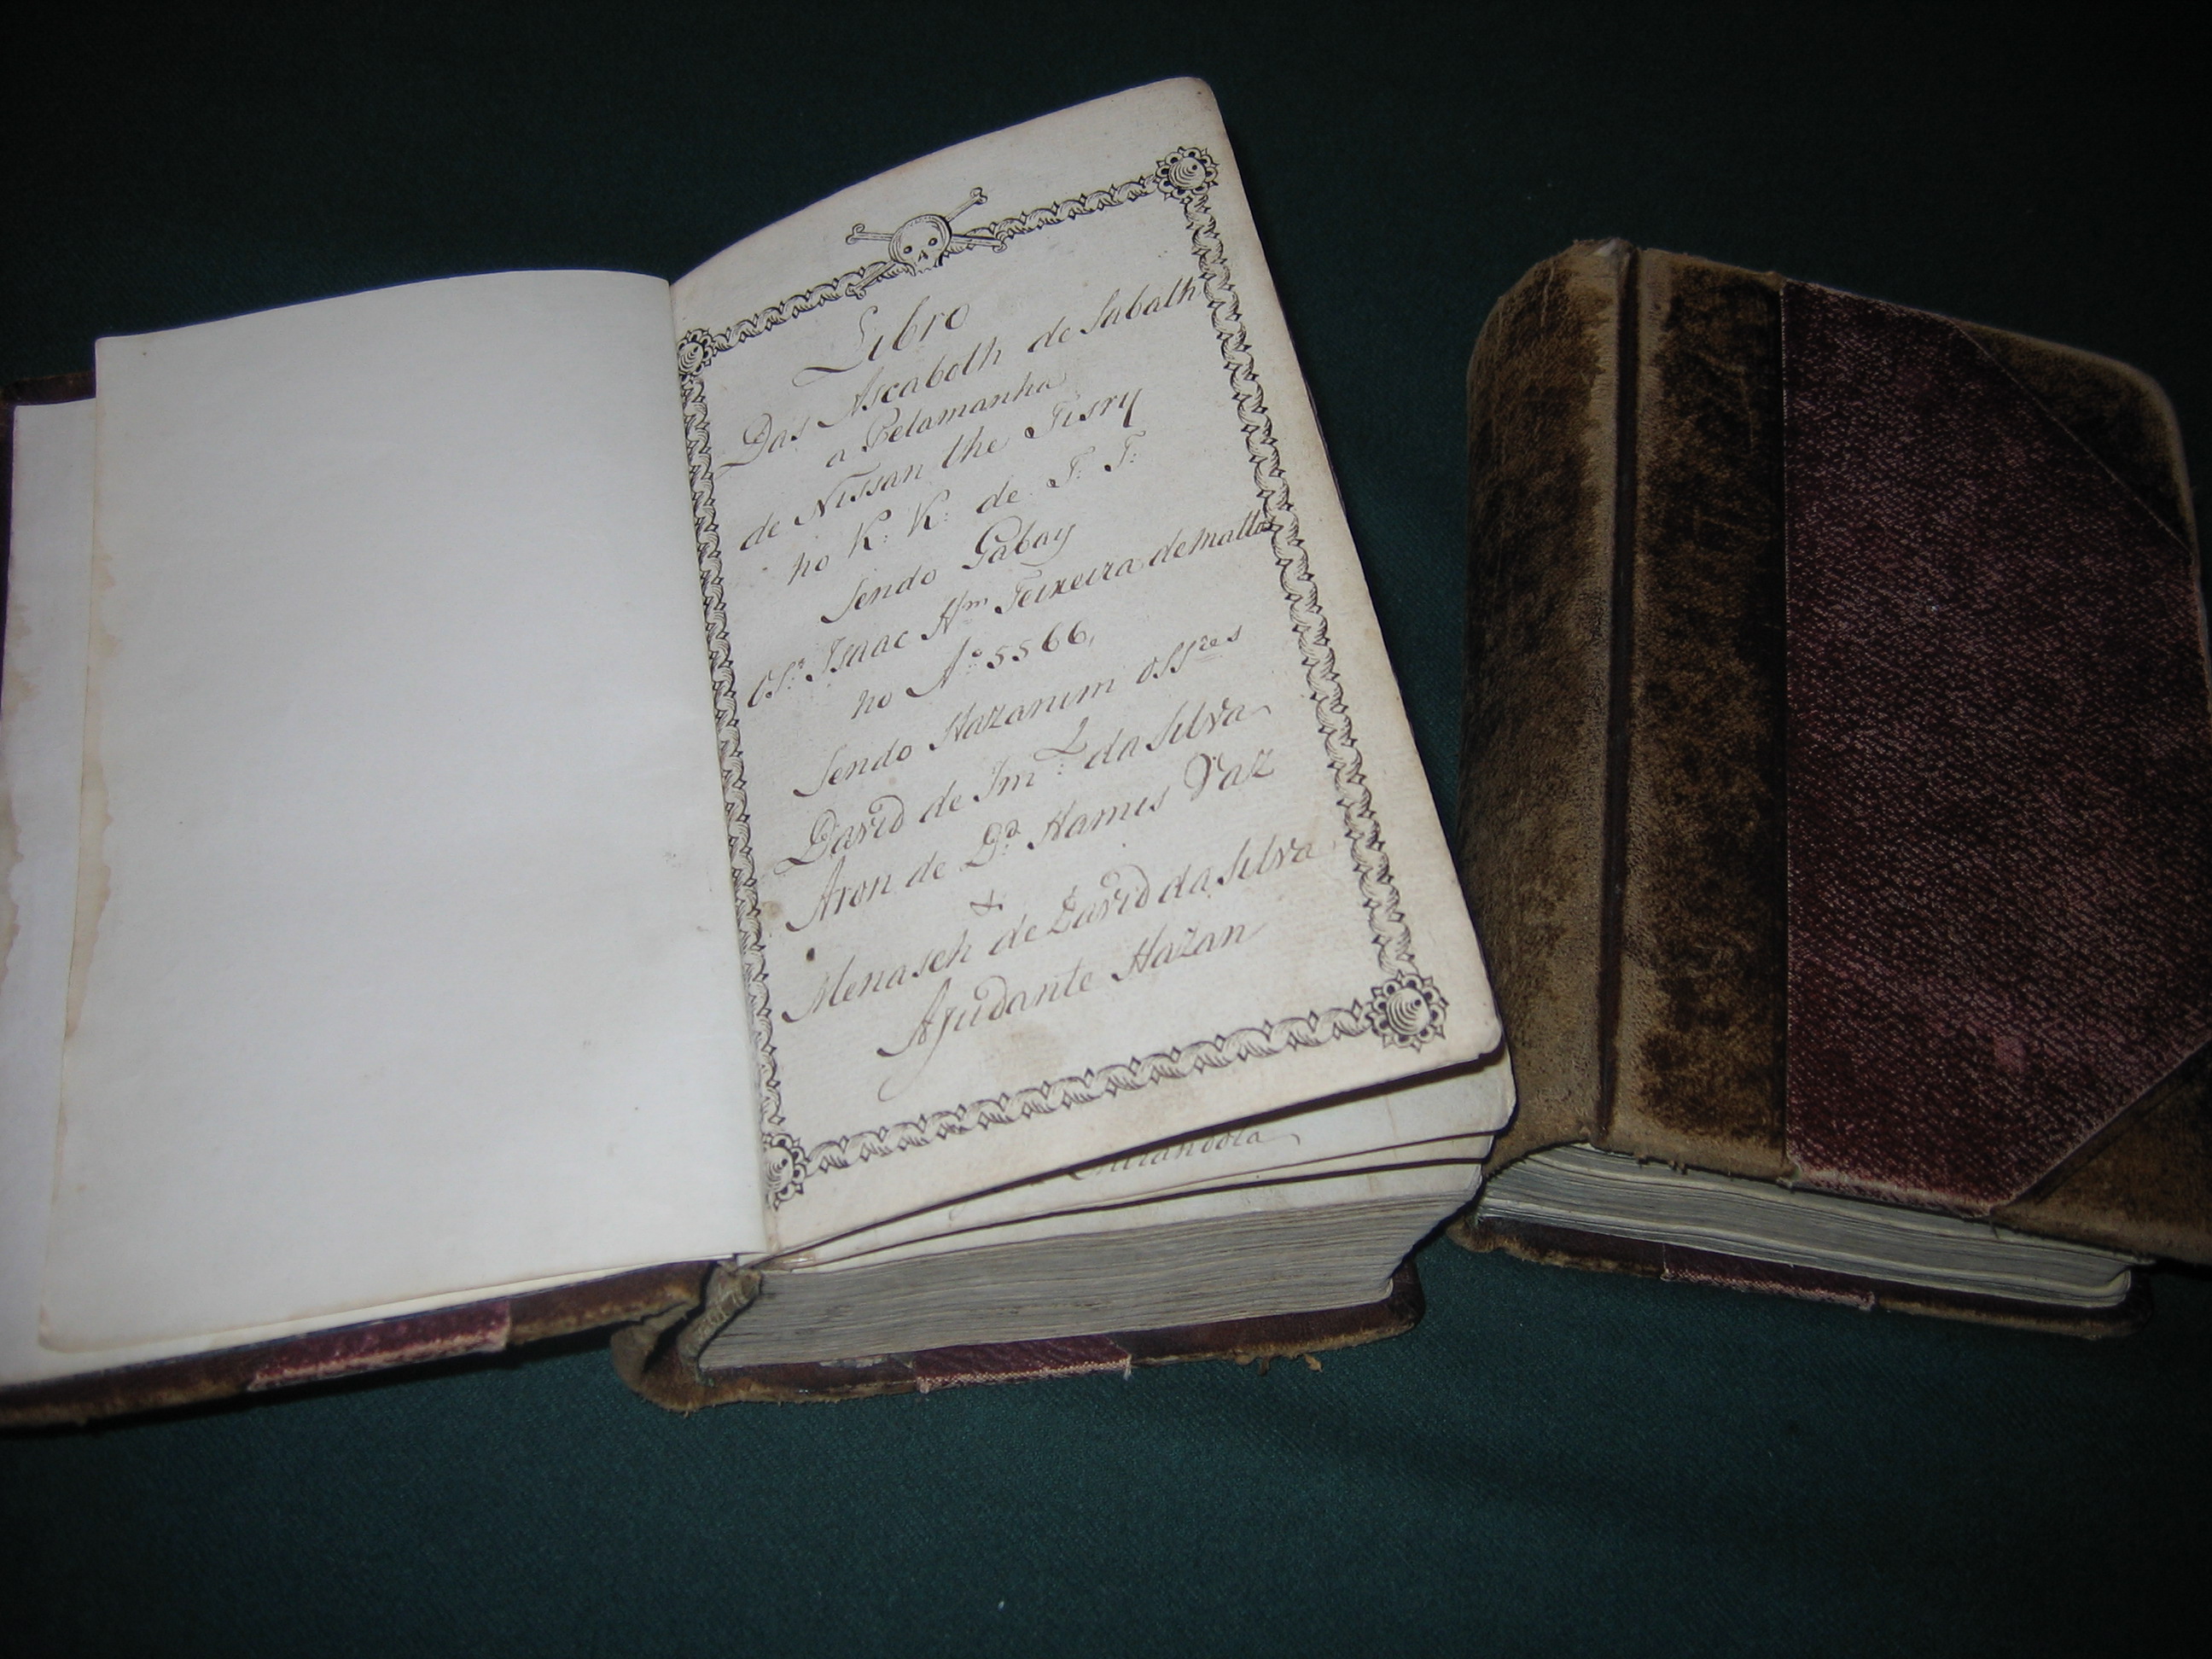 Libro
Das Ascaboth de Sabath
a Pelamanha
de Nissan the Tisry
no K: K: de T: T:
Sendo Gabay
o Sr. Isaac Hm Teixeira de Mattos
no Ao 5566,
Sendo Hazanim os Sres
David de Iml: da Silva
Aron de Dd. Hamis Vaz
&
Menaseh de David da Silva
Ajudante Hazan